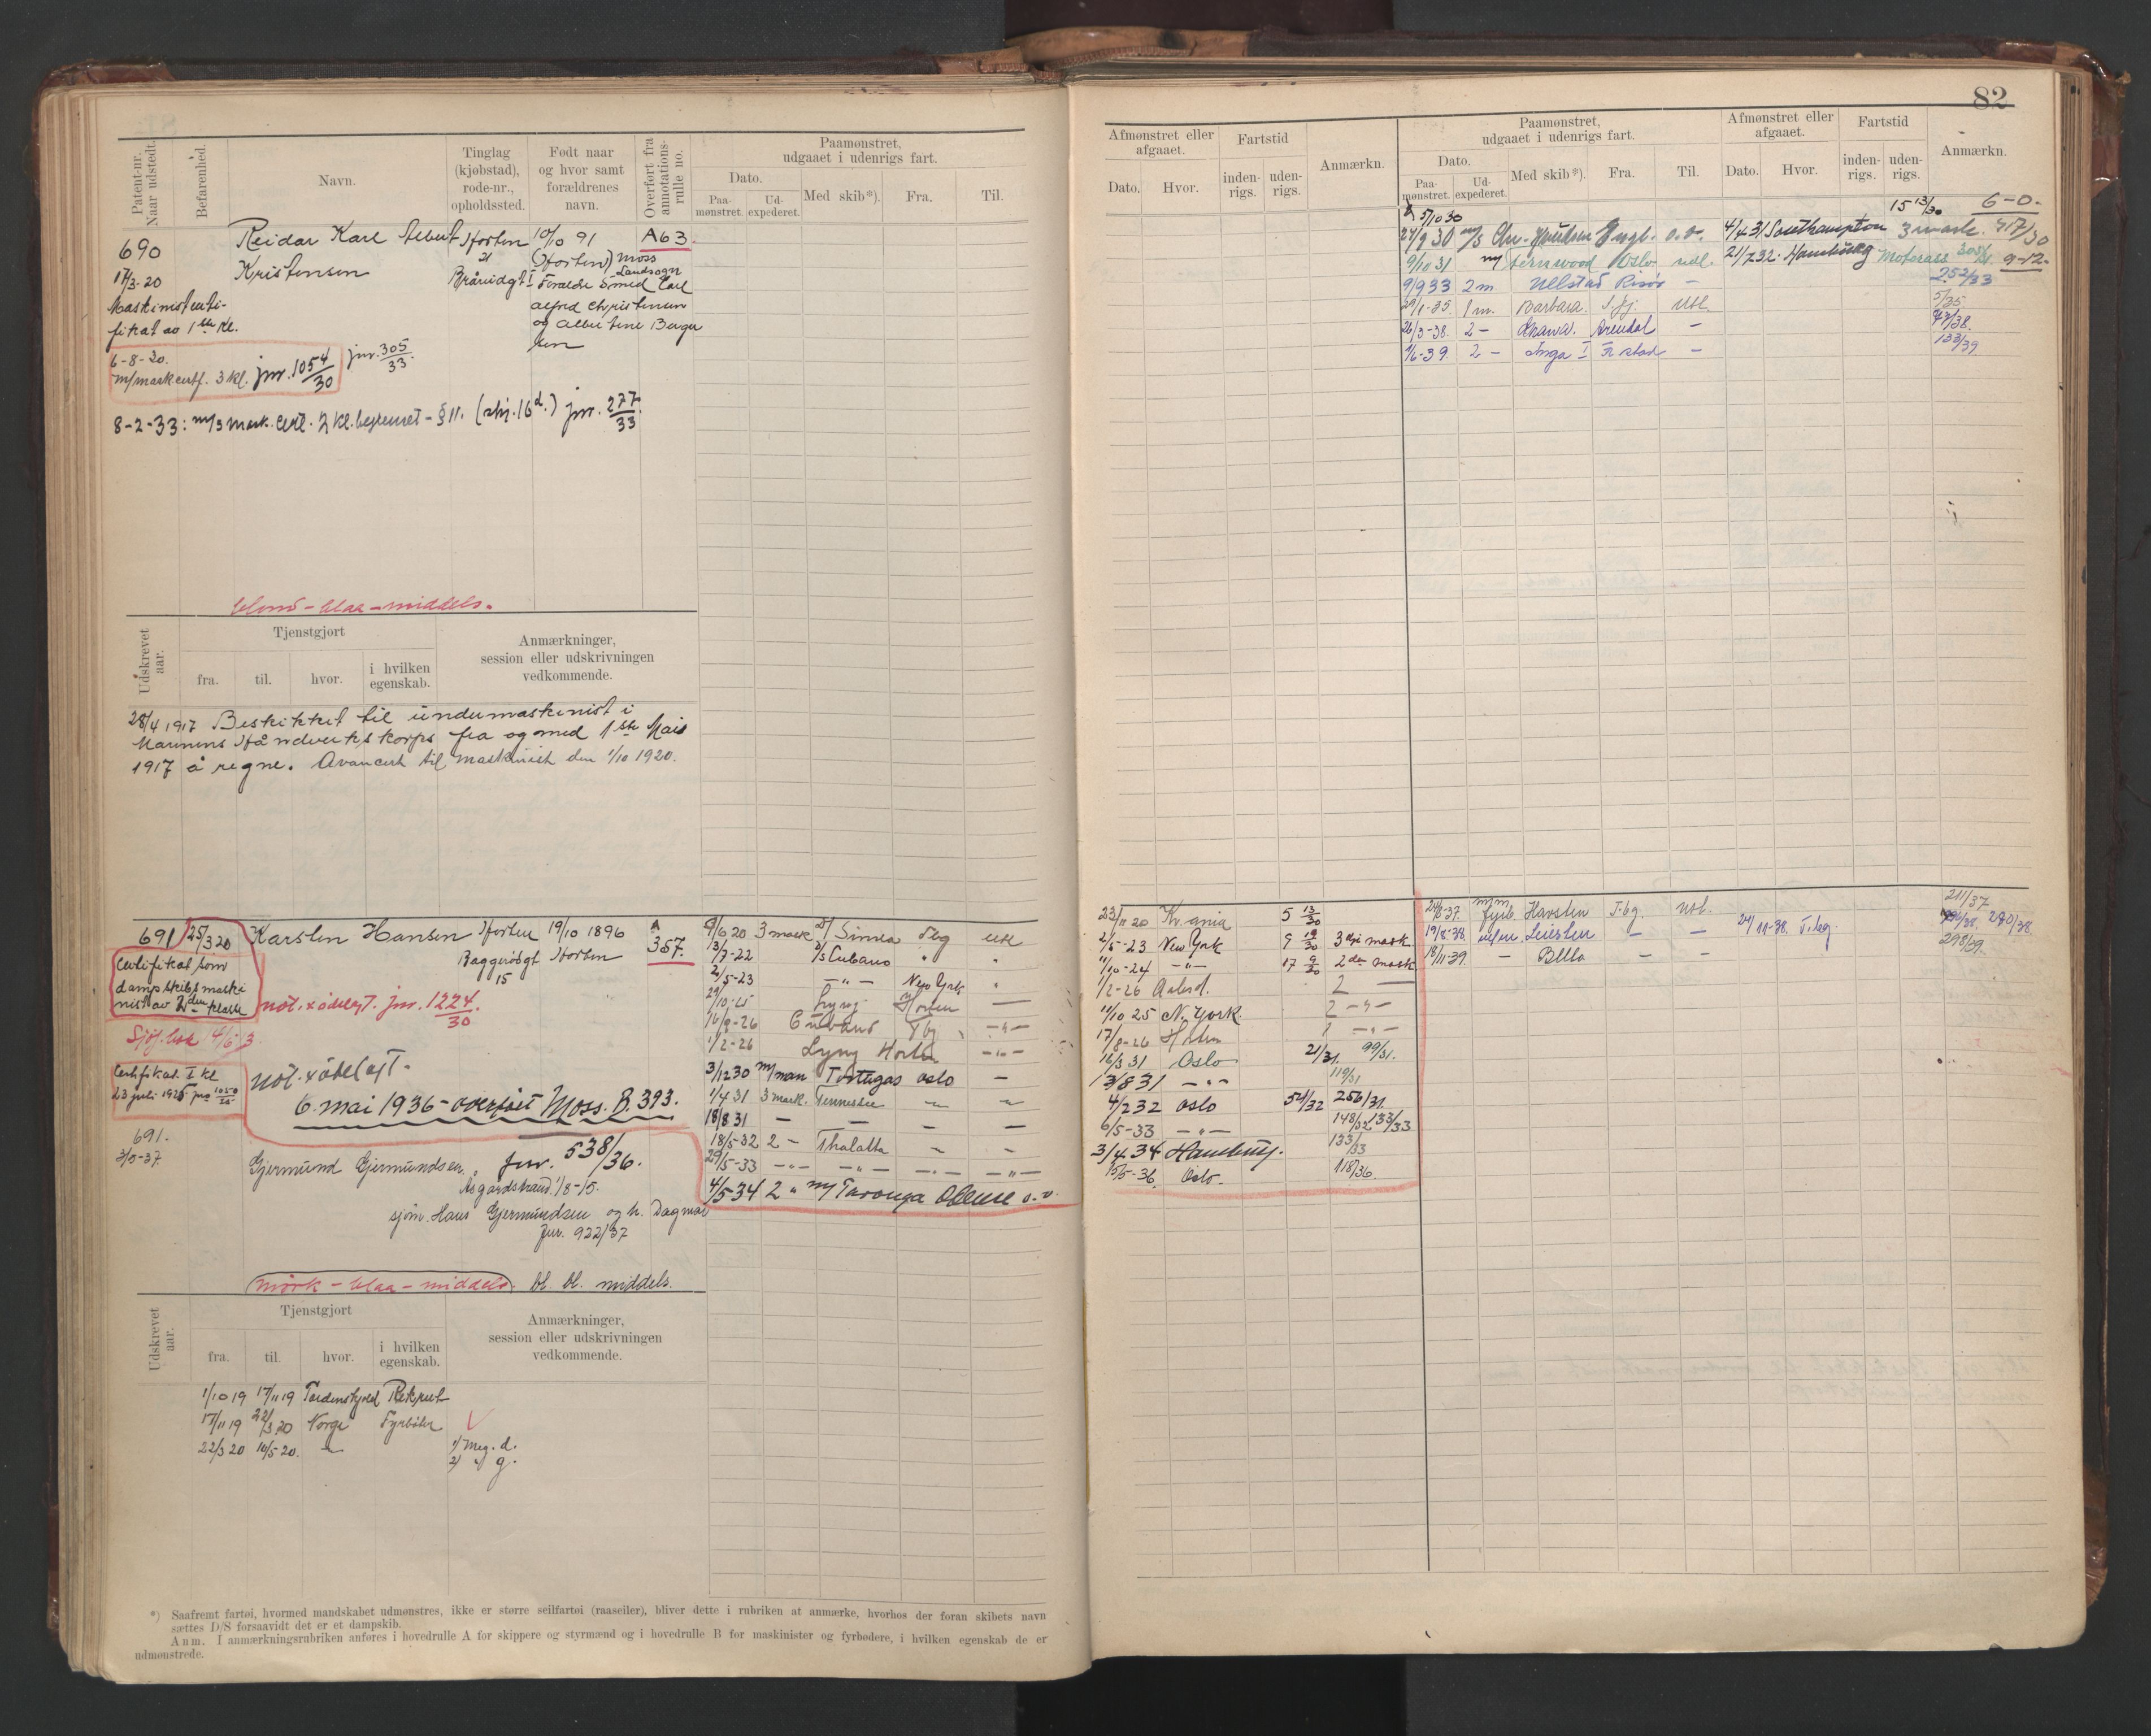 82
Patent-nr.
Naar udstedt.
Befarenhed.
Navn.
Tinglag
(kjøbstad),
rode-nr.,
opholdssted.
Født naar
og hvor samt
forældrenes
navn.
Overført fra
annotations-
rulle no.
Paamønstret,
udgaaet i udenrigs fart.
Dato.
Paa-
mønstret.
Ud-
expederet.
Med skib*).
Fra.
Til.
690
17/3-20
Maskinistcerti-
fikat av 1ste kl.
6-8-20.
m/mask.certf. 3 kl. jnr. 1054/30
jnr. 305/33.
Reidar Karl Albert
Kristensen
Horten
10/10 91
(Horten) Moss
Landsogn
Forældre Smed Carl
Alfred Christensen
og Albertine Berger
A63
8-2-33: m/s mask. cert. 2 kl. begrenset - § 11. (skj. 16d.) jnr. 277/33
blond - blaa - middels.
Udskrevet
aar.
Tjenstgjort
fra.
til.
hvor.
i hvilken
egenskab.
Anmærkninger,
session eller udskrivningen
vedkommende.
28/4 1917 Beskikket til undermaskinist i
Marinens Håndverkskorps fra og med 1ste Mai
1917 å regne. Avancert til maskinist den 1/10 1920.
691
25/3 20
Certifikat som
dampskibsmaski
nist av 2den klasse
Karsten Hansen
Horten
Baggerødgt Horten
15
19/10 1896
A
357.
not. x ødelagt. jnr. 1224/30
Certifikat I kl
23 juli 1925 jnr 1050/25
not. x ødelagt.
6. mai 1936 - overført Moss. B. 393.
jnr. 538/36.
691.
3/5-37.
Gjermund Gjermundsen.
Åsgårdstrand. 1/8-15.
sjøm. Hans Gjermundsen og h. Dagmar
Jnr. 922/37
mørk - blaa - middels. bl. bl. middels.
9/6 20 3 mask D/ Simla Tbg utl
3/7-22 D/s Cubano " "
2/5-23 -"- New York "
29/10-25 Lyng Horten —
16/8-26 Cubano Tbg -"-
1/2-26 Lyng Horten -"-
3/12 30 m/man Tortugas Oslo —
1/4 31 3 mask. Tennessee — —
18/8 31 — — —
18/5-32 2 - Thalatta — —
29/5-33 -"- -"- -"- -"-
4/5 34 2 " m/ Taronga Odense o.v.
Udskrevet
aar.
Tjenstgjort
fra.
til.
hvor.
i hvilken
egenskab.
Anmærkninger,
session eller udskrivningen
vedkommende.
1/10 19 17/11 19 Tordenskjold Rekrut
17/11 19 22/3 20 Norge Fyrbøter
22/3 20 10/5 20. —
1) Meg. d.
2) " g.
*) Saafremt fartøi, hvormed mandskabet udmønstres, ikke er større seilfartøi (raaseiler), bliver dette i rubriken at anmærke, hvorhos der foran skibets navn
sættes D/S forsaavidt det er et dampskib.
Anm. I anmærkningsrubriken anføres i hovedrulle A for skippere og styrmænd og i hovedrulle B for maskinister og fyrbødere, i hvilken egenskab de er
udmønstrede.
Afmønstret eller
afgaaet.
Dato.
Hvor.
Fartstid
inden-
rigs.
uden-
rigs.
Anmærkn.
Paamønstret,
udgaaet i udenrigs fart.
Dato.
Paa-
mønstret.
Ud-
expederet.
Med skib*).
Fra.
Til.
Afmønstret eller
afgaaet.
Dato.
Hvor.
Fartstid
inden-
rigs.
uden-
rigs.
Anmærkn.
5/10 30
15 13/30 6-0-
27/9 30 m/s Chr. Knudsen Engl. o.v. 4/4 31 Southampton 3 mask. 717/30
9/10 31 m/ Fernwood Oslo utl. 21/7 32. Hamburg Motorass 9-12-
9/9 33 2 m. Ullstad Risør - 252/33
29/1-35. 1 m. Barbara Utl. 5/35
26/3-38. 2 - Arendal - 73/38.
1/6-39. 2 - Inga I Fr.stad - 133/39
23/11 20 Kr.ania 5 13/30
2/5-23 New York 9 19/30 3dje mask
11/10-24 -"- 17 9/30 2den mask
1/2-26 2 —
11/10 25 N. York. 2 -"-
17/8-26 Horten 1 -"-
16/3 31 Oslo 21/31. 99/31.
13/8 31 -"- 119/31
4/2 32 Oslo 54/32 256/31.
6/5-33 -"- 148/32 133/33
3/4 34 Hamburg. 133/33
15/5-36. Oslo. 118/36.
24/8-37. fyrb. Havsten T.bg. Utl. 211/37
19/8-38. Leiesten — — 24/11-38. T.bg. 280/38.
18/11-39. — Bello — — 298/39.